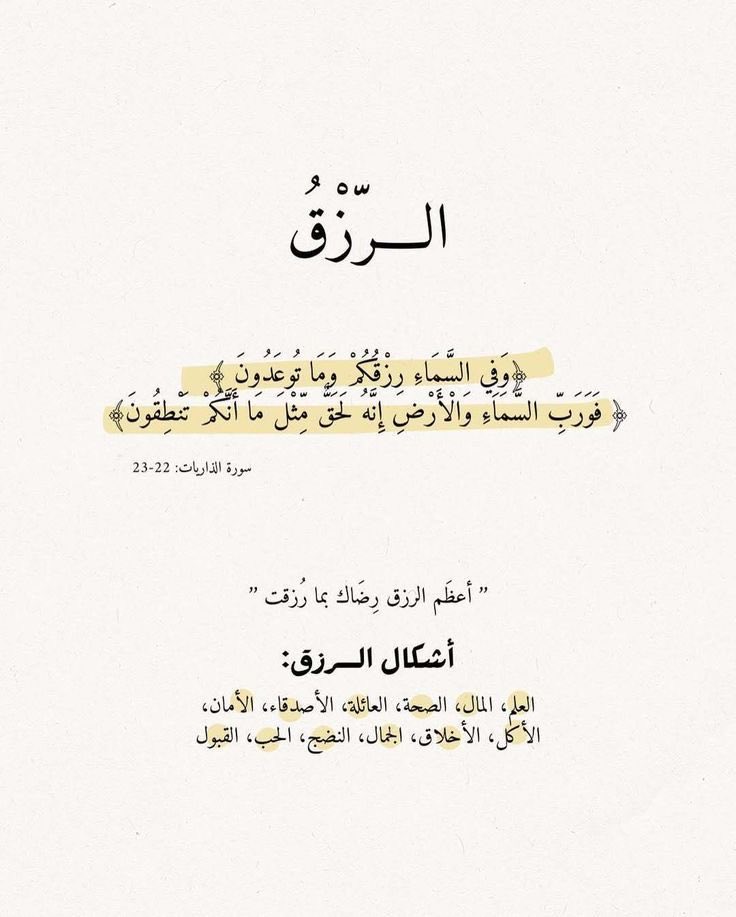 الـــرّزْقُ
﴿وَفِي السَّمَاءِ رِزْقُكُمْ وَمَا تُوعَدُونَ ﴾
﴿ فَوَرَبِّ السَّمَاءِ وَالْأَرْضِ إِنَّهُ لَحَقٌّ مِّثْلَ مَا أَنَّكُمْ تَنْطِقُونَ﴾
سورة الذاريات: 22-23
” أعظَم الرزق رِضَاك بما رُزقت ”
أشكال الـــرزق:
العلم، المال، الصحة، العائلة، الأصدقاء، الأمان،
الأكل، الأخلاق، الجمال، النضج، الحب، القبول